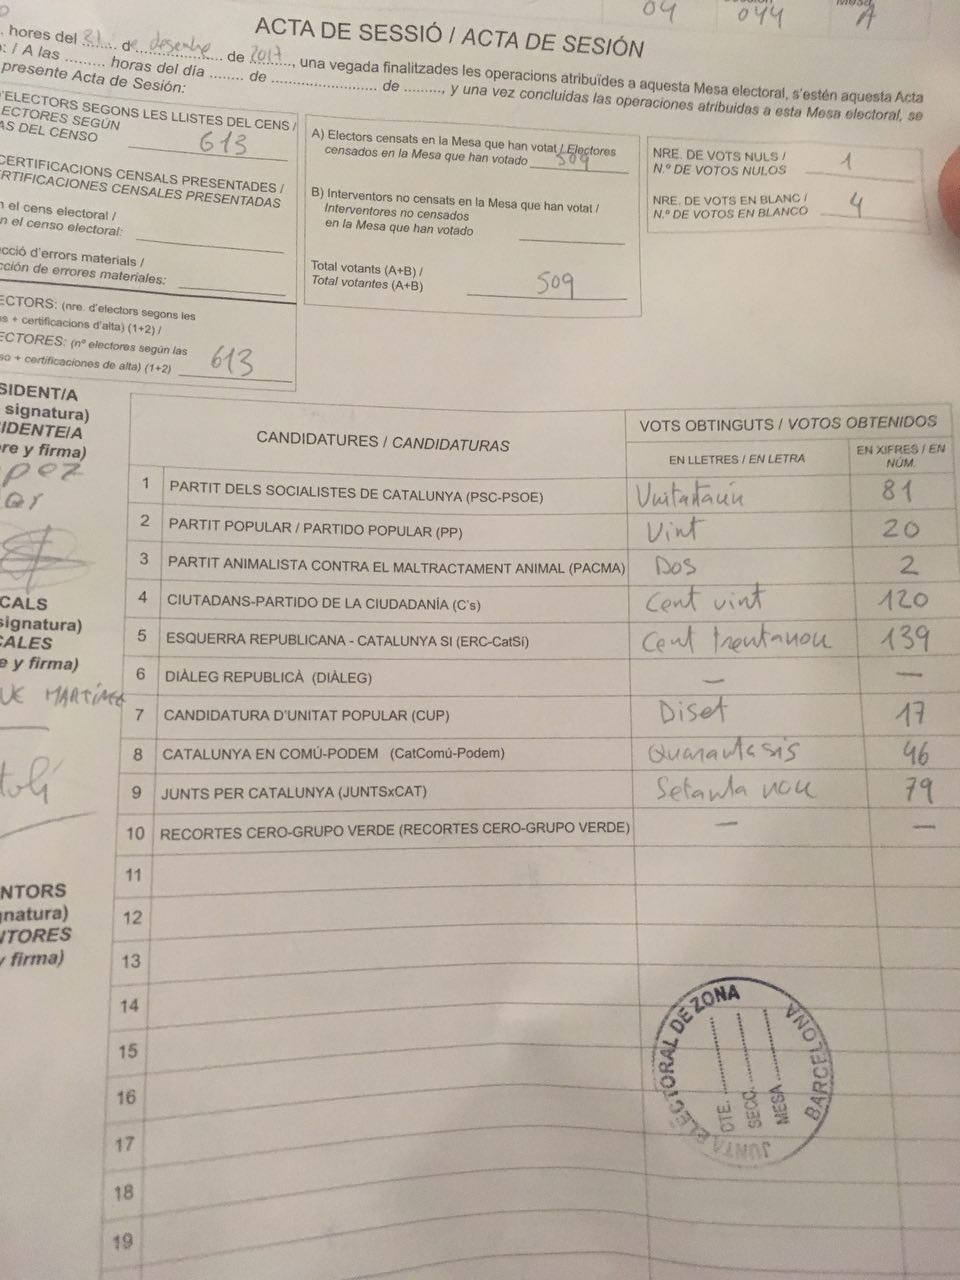 04 044 A
ACTA DE SESSIÓ / ACTA DE SESIÓN
hores del 21 de desembre de 2017, una vegada finalitzades les operacions atribuïdes a aquesta Mesa electoral, s'estén aquesta Acta
/ A las ........ horas del día ........ de ........................ de ........, y una vez concluidas las operaciones atribuidas a esta Mesa electoral, se
presente Acta de Sesión:
ELECTORS SEGONS LES LLISTES DEL CENS /
SEGÚN
DEL CENSO 613
CERTIFICACIONS CENSALS PRESENTADES /
CENSALES PRESENTADAS
el cens electoral /
el censo electoral:
d'errors materials /
de errores materiales:
(nre. d'electors segons les
+ certificacions d'alta) (1+2) /
(nº electores según las
+ certificaciones de alta) (1+2) 613
A) Electors censats en la Mesa que han votat / Electores
censados en la Mesa que han votado 509
B) Interventors no censats en la Mesa que han votat /
Interventores no censados
en la Mesa que han votado
Total votants (A+B) /
Total votantes (A+B) 509
NRE. DE VOTS NULS /
N.º DE VOTOS NULOS 1
NRE. DE VOTS EN BLANC /
N.º DE VOTOS EN BLANCO 4
SIDENT/A
signatura)
IDENTE/A
re y firma)
CALS
signatura)
CALES
e y firma)
MARTÍNEZ
NTORS
gnatura)
NTORES
y firma)
CANDIDATURES / CANDIDATURAS VOTS OBTINGUTS / VOTOS OBTENIDOS
EN LLETRES / EN LETRA EN XIFRES / EN NÚM.
1 PARTIT DELS SOCIALISTES DE CATALUNYA (PSC-PSOE) Vuitantaún 81
2 PARTIT POPULAR / PARTIDO POPULAR (PP) Vint 20
3 PARTIT ANIMALISTA CONTRA EL MALTRACTAMENT ANIMAL (PACMA) Dos 2
4 CIUTADANS-PARTIDO DE LA CIUDADANÍA (C's) Cent vint 120
5 ESQUERRA REPUBLICANA - CATALUNYA SI (ERC-CatSí) Cent trentanou 139
6 DIÀLEG REPUBLICÀ (DIÀLEG) — —
7 CANDIDATURA D'UNITAT POPULAR (CUP) Diset 17
8 CATALUNYA EN COMÚ-PODEM (CatComú-Podem) Quarantasis 46
9 JUNTS PER CATALUNYA (JUNTSxCAT) Setanta nou 79
10 RECORTES CERO-GRUPO VERDE (RECORTES CERO-GRUPO VERDE) — —
11
12
13
14
15
16
17
18
19
JUNTA ELECTORAL DE ZONA
BARCELONA
DTE. ..........
SECC. ..........
MESA ..........